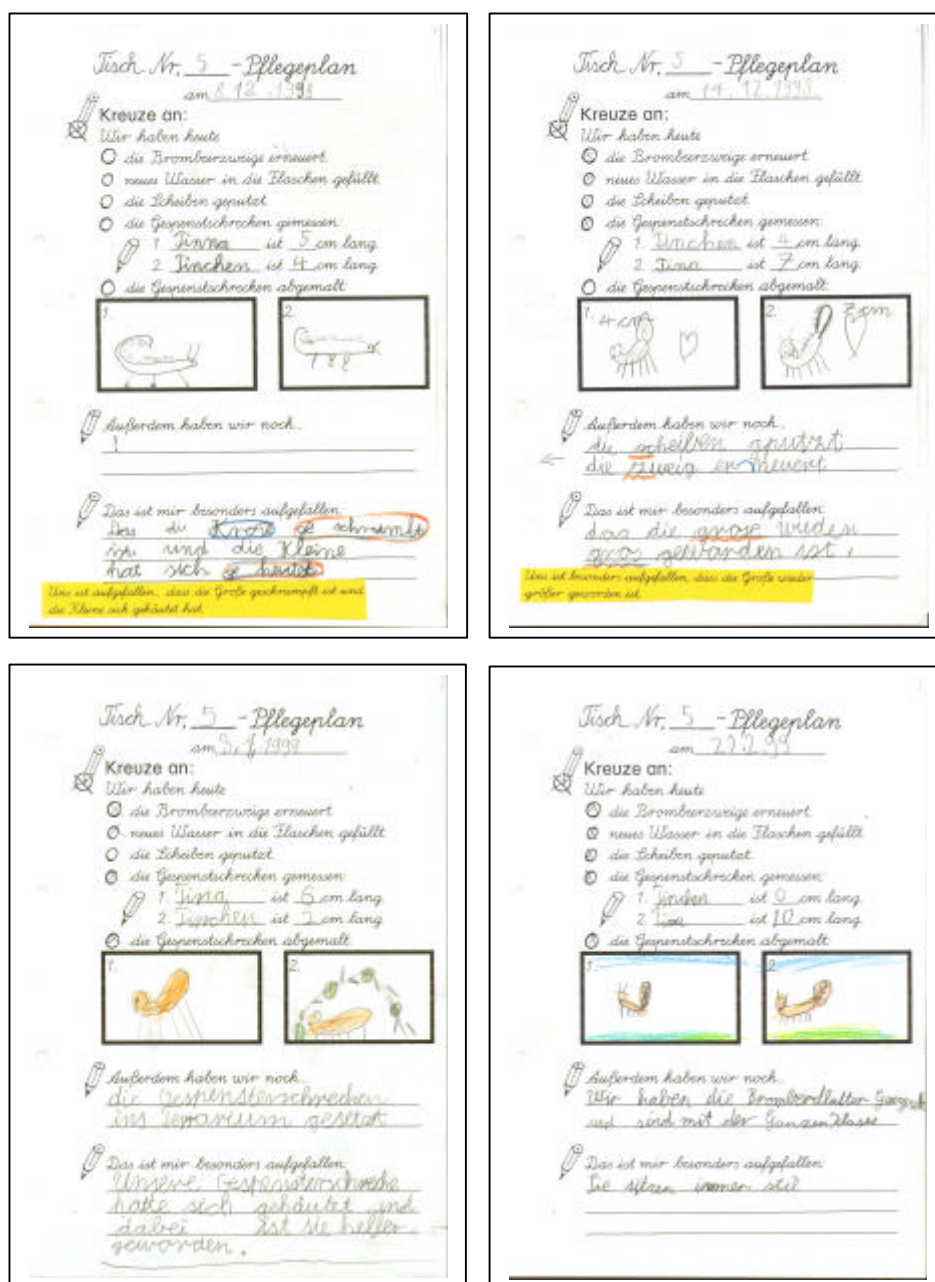 Tisch Nr. 5 - Pflegeplan
am 8.12.1998
Kreuze an:
Wir haben heute
die Brombeerzweige erneuert
neues Wasser in die Flaschen gefüllt
die Scheiben geputzt
die Gespenstschrecken gemessen:
1. Tinna ist 5 cm lang
2. Tinchen ist 4 cm lang
die Gespenstschrecken abgemalt
1.
2.
Außerdem haben wir noch...
!
Das ist mir besonders aufgefallen:
Das die Krose ge schrumbt
ist und die Kleine
hat sich ge heutet
Uns ist aufgefallen, dass die Große geschrumpft ist und
die Kleine sich gehäutet hat.
Tisch Nr. 5 - Pflegeplan
am 14.12.1998
Kreuze an:
Wir haben heute
die Brombeerzweige erneuert
neues Wasser in die Flaschen gefüllt
die Scheiben geputzt
die Gespenstschrecken gemessen:
1. Tinchen ist 4 cm lang
2. Tina ist 7 cm lang
die Gespenstschrecken abgemalt
1. 4 cm
2. 7 cm
Außerdem haben wir noch...
die scheiben gputzt
die zweig erneuert
Das ist mir besonders aufgefallen:
das die grose wieder
gros geworden ist.
Uns ist besonders aufgefallen, dass die Große wieder
größer geworden ist.
Tisch Nr. 5 - Pflegeplan
am 1999
Kreuze an:
Wir haben heute
die Brombeerzweige erneuert
neues Wasser in die Flaschen gefüllt
die Scheiben geputzt
die Gespenstschrecken gemessen:
1. Tina ist 6 cm lang
2. Tinchen ist cm lang
die Gespenstschrecken abgemalt
1.
2.
Außerdem haben wir noch...
die Gespensterschrecken
ins Terrarium gesetzt
Das ist mir besonders aufgefallen:
Unsere Gespensterschrecke
hatte sich gehäutet und
dabei ist sie heller
geworden.
Tisch Nr. 5 - Pflegeplan
am
Kreuze an:
Wir haben heute
die Brombeerzweige erneuert
neues Wasser in die Flaschen gefüllt
die Scheiben geputzt
die Gespenstschrecken gemessen:
1. ist 0 cm lang
2. ist 10 cm lang
die Gespenstschrecken abgemalt
1.
2.
Außerdem haben wir noch...
Wir haben die
und sind mit der Ganzen Klasse
Das ist mir besonders aufgefallen:
Sie sitzen immer stil